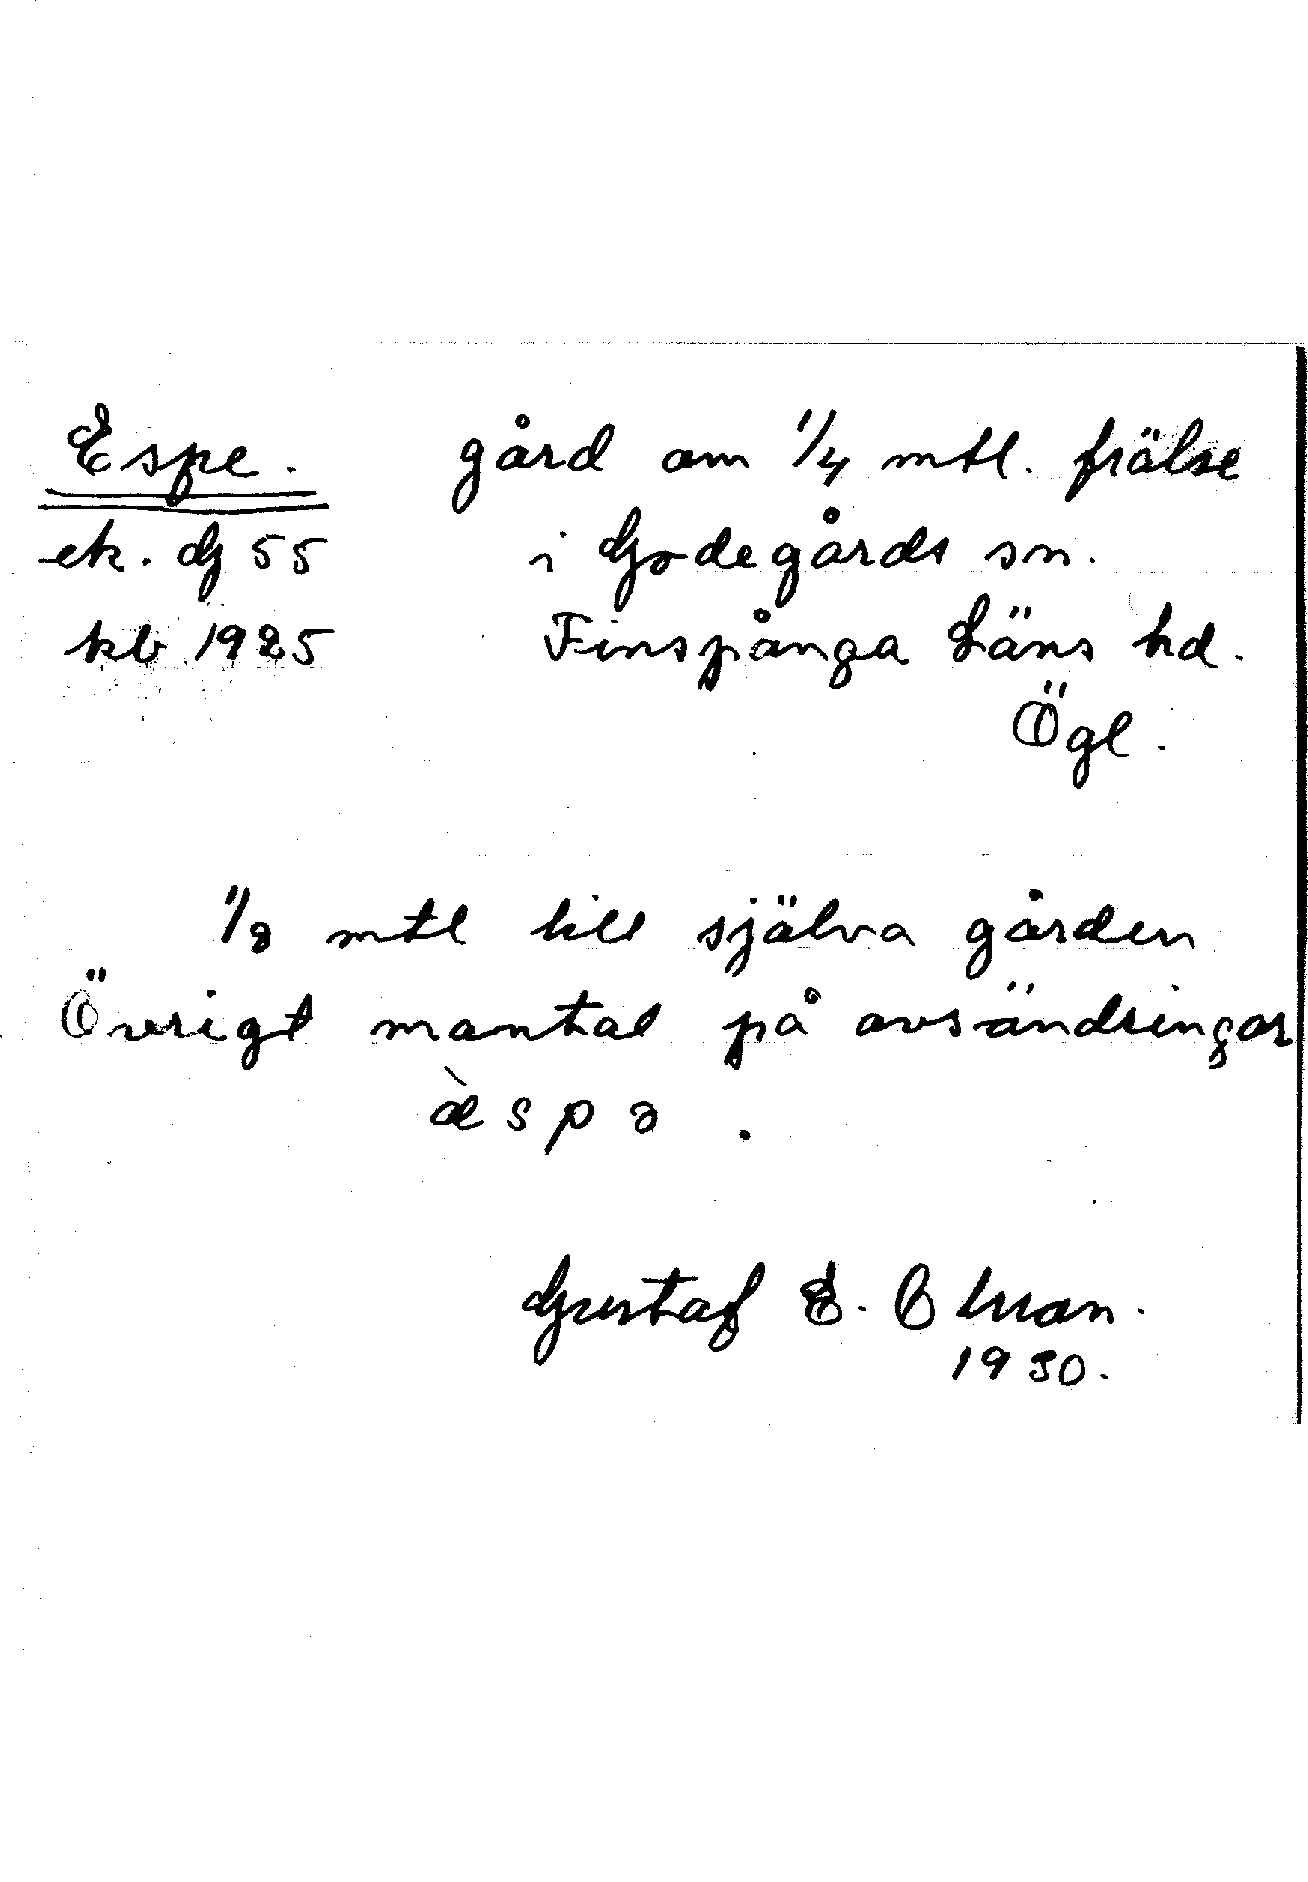 Espe. gård om 1/4 mtl. frälse
ek. dg 55 i Godegårds sn.
kb 1925 Finspånga Läns hd.
Ögl.
1/8 mtl till själva gården
Övrigt mantal på avsöndringar
æ̀spə.
Gustaf E.
1930.